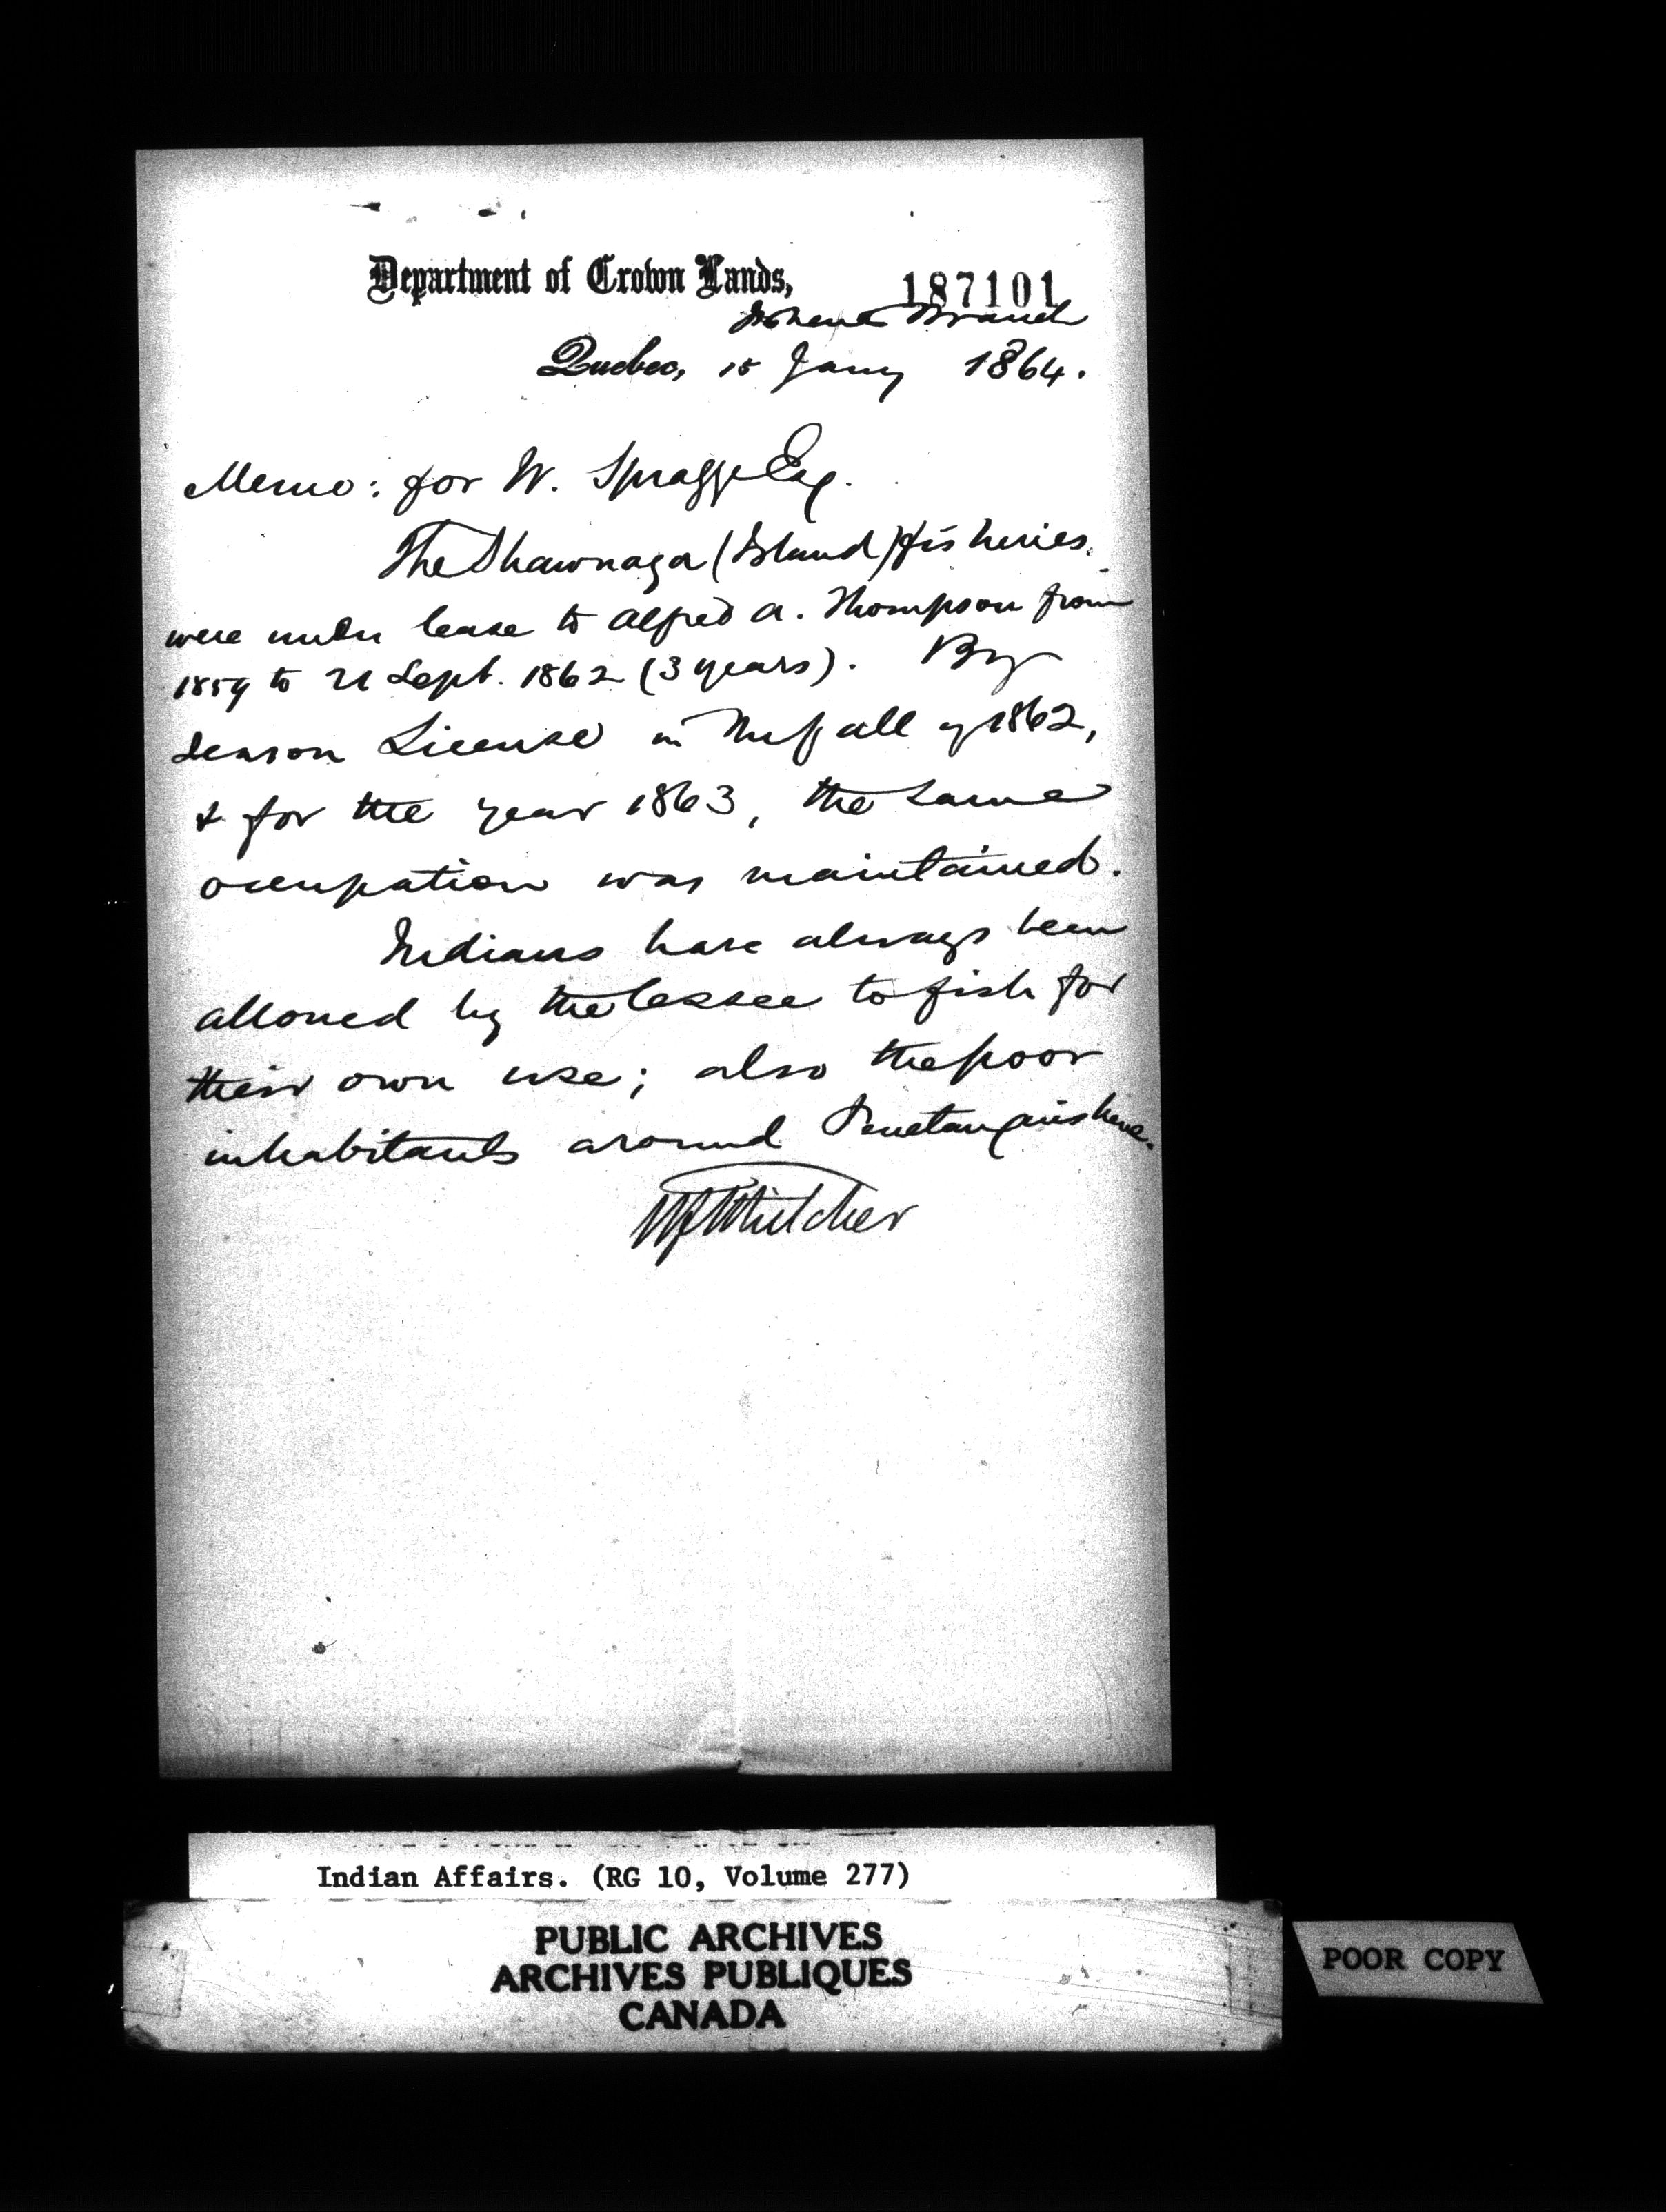 Department of Crown Lands,
187101
Fisheries Branch
Quebec, 15 Jany 1864.
Memo: for W. Spragge Esq.
The Shawnaga (Island) fisheries
were under lease to Alfred A. Thompson from
1859 to 21 Sept. 1862 (3 years). By
Season License in the fall of 1862,
& for the year 1863, the same
occupation was maintained.
Indians have always been
allowed by the lessee to fish for
their own use; also the poor
inhabitants around Penetanguishene.
WF Whitcher
Indian Affairs. (RG 10, Volume 277)
PUBLIC ARCHIVES
ARCHIVES PUBLIQUES
CANADA
POOR COPY